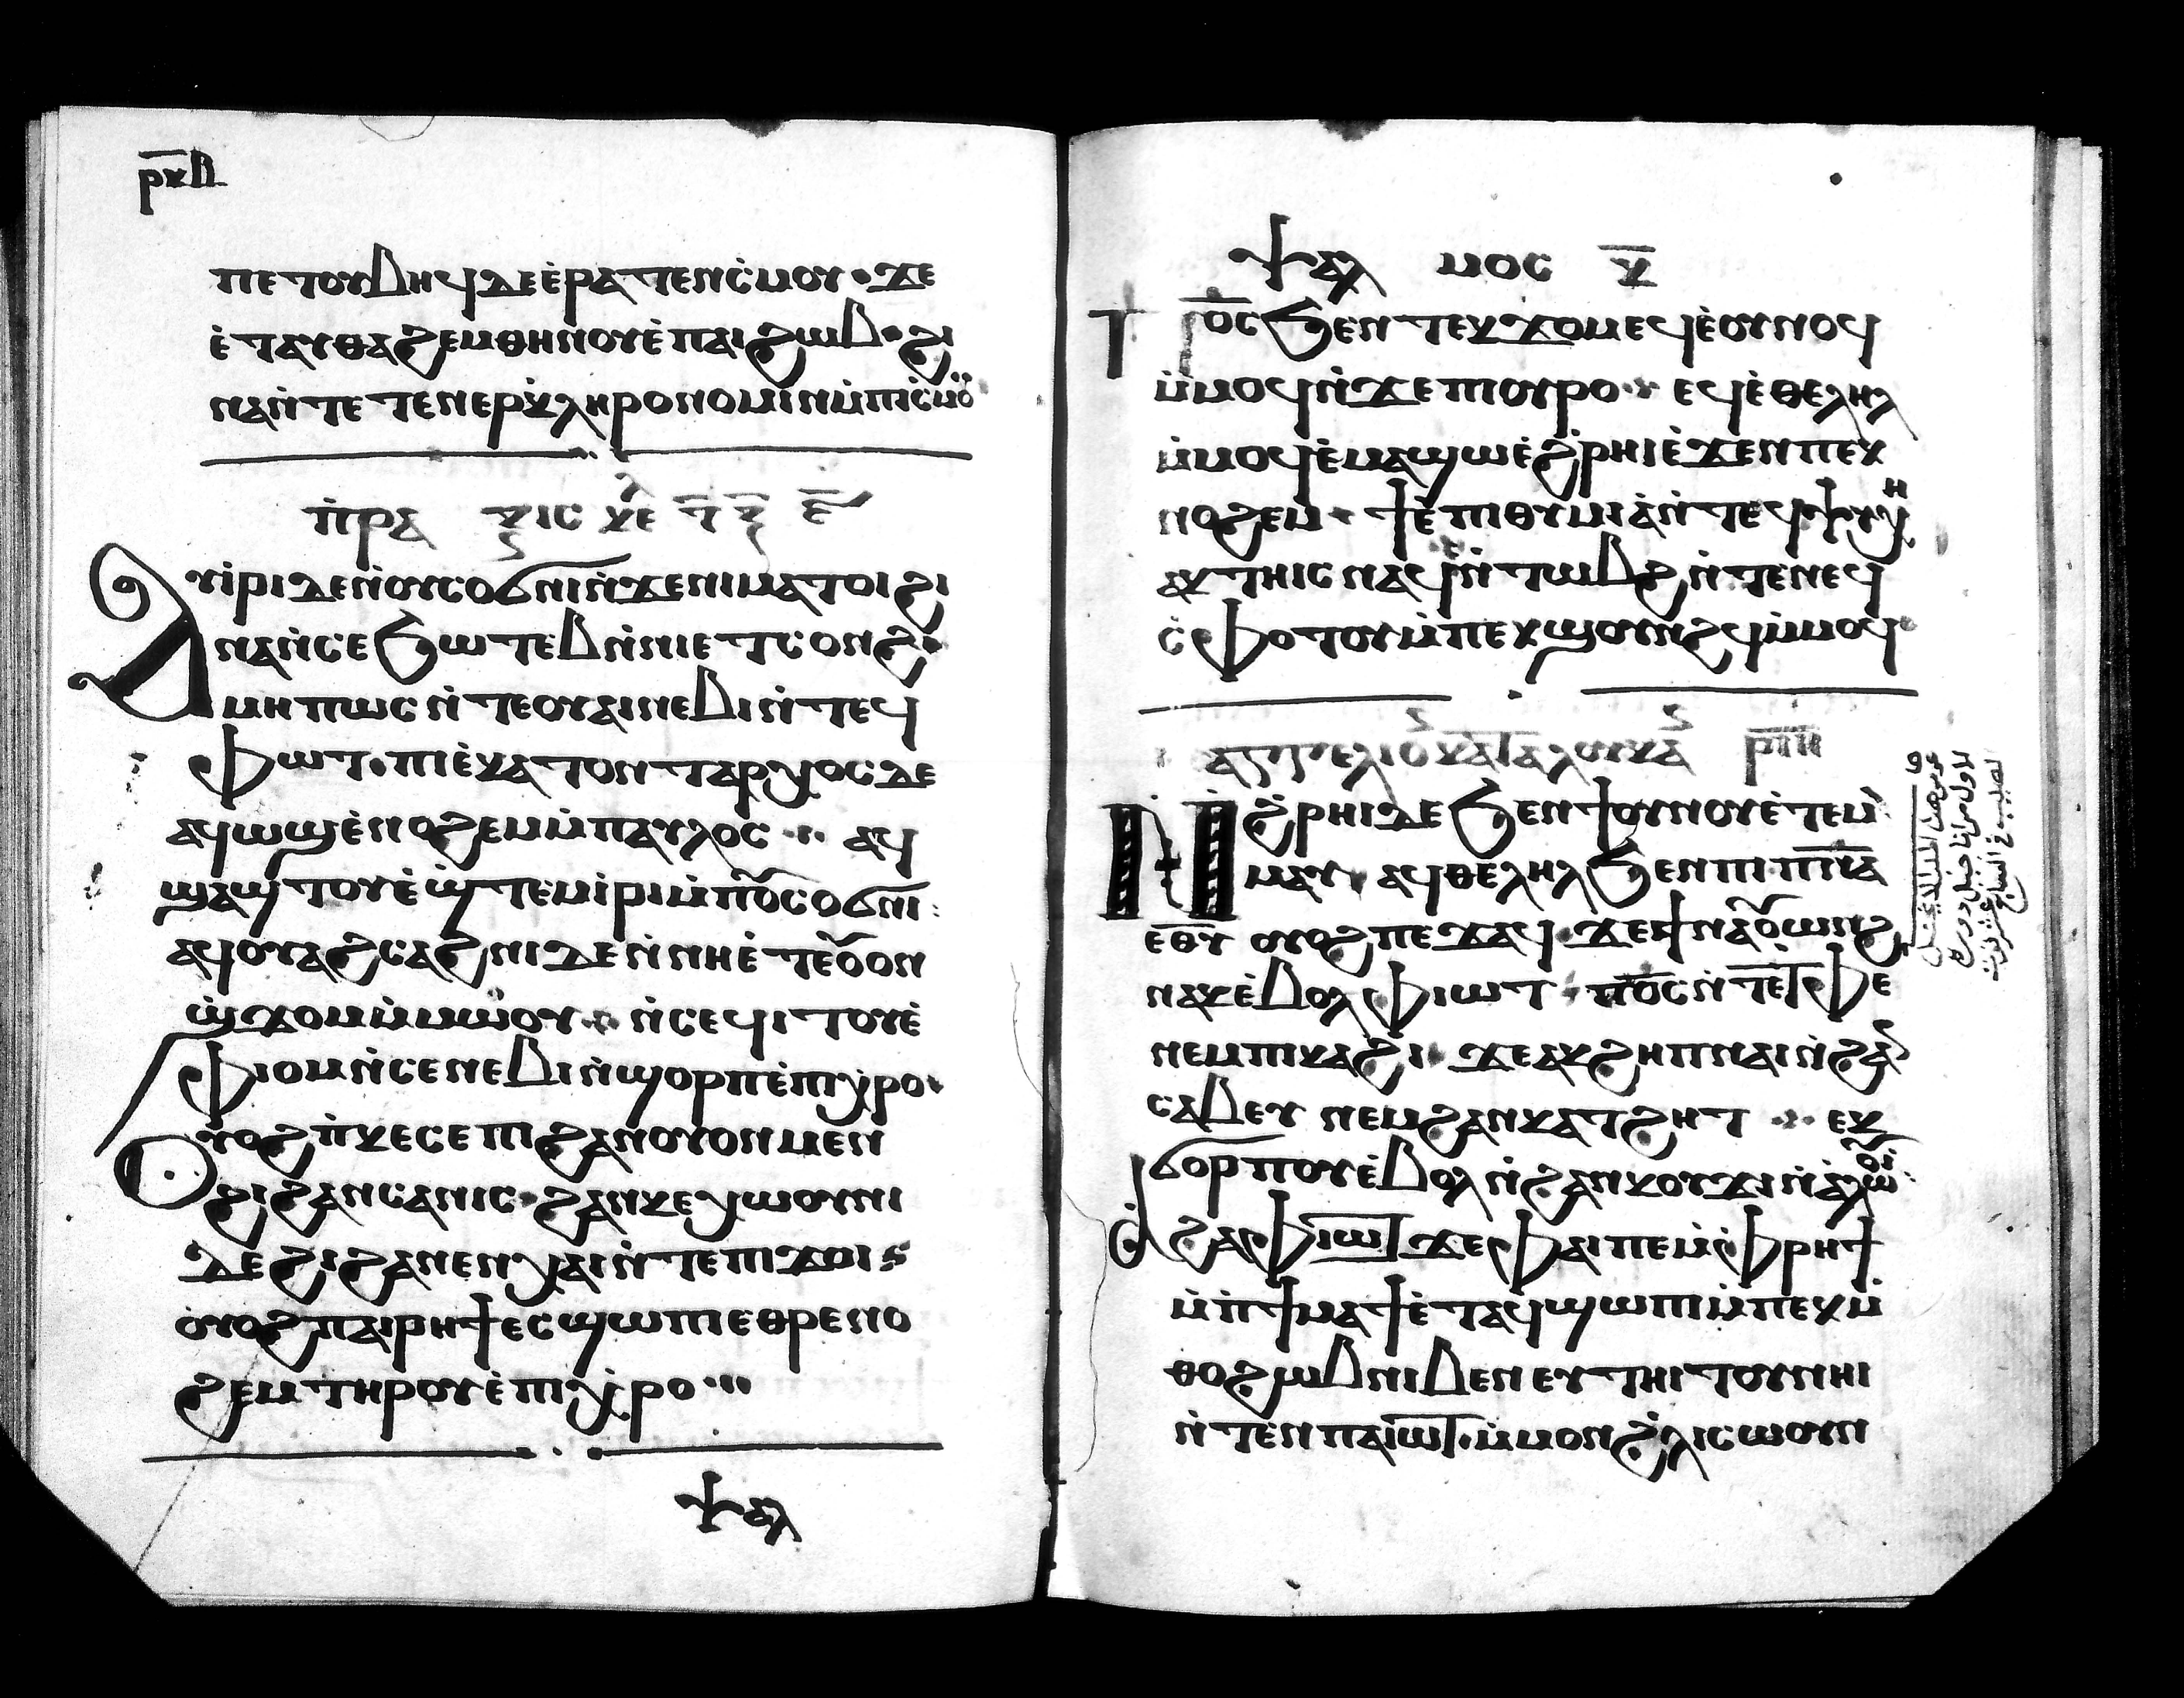 ⲣⲕⲃ
ⲡⲉⲧⲟⲩⲃⲏϥ ⲇⲉ ⲉ̀ⲣⲁⲧⲉⲛⲥ̀ⲙⲟⲩ· ϫⲉ
ⲉ̀ⲧⲁⲩⲑⲁϩⲉⲙⲑⲏⲛⲟⲩ ⲉ̀ⲡⲁⲓϩⲱⲃ· ϩⲓ
ⲛⲁ ⲛ̀ⲧⲉⲧⲉⲛⲉⲣⲕ̀ⲗⲏⲣⲟⲛⲟⲙⲓⲛ ⲙ̀ⲡⲓⲥ̀ⲙⲟ̈
ⲡ̀ⲣⲁ ⲝⲓⲥ ⲕⲉ
ⲁⲩⲓ̀ⲣⲓ ⲇⲉ ⲛ̀ⲟⲩⲥⲟϭⲛⲓ ⲛ̀ϫⲉ ⲛⲓⲙⲁⲧⲟⲓ ϩⲓ
ⲛⲁ ⲛ̀ⲥⲉϧⲱⲧⲉⲃ ⲛ̀ⲛⲓⲉⲧⲥⲟⲛϩ·
ⲙⲏⲡⲱⲥ ⲛ̀ⲧⲉ ⲟⲩⲁⲓ ⲛⲉⲃⲓ ⲛ̀ⲧⲉϥ
ⲫⲱⲧ· ⲡⲓⲉ̀ⲕⲁⲧⲟⲛⲧⲁⲣⲭⲟⲥ ⲇⲉ
ⲁϥⲱϣ ⲉ̀ⲛⲟϩⲉⲙ ⲙ̀ⲡⲁⲩⲗⲟⲥ ·· ⲁϥ
ϣⲁϣⲧⲟⲩ ⲉ̀ϣ̀ⲧⲉⲙⲓ̀ⲣⲓ ⲙ̀ⲡⲟ̅ⲩⲥⲟϭⲛⲓ:
ⲁϥⲟⲩⲁϩⲥⲁϩⲛⲓ ⲇⲉ ⲛ̀ⲛⲏ ⲉ̀ⲧⲉ ⲟⲩⲟⲛ
ϣ̀ϫⲟⲙ ⲙ̀ⲙⲱⲟⲩ ·· ⲛ̀ⲥⲉϥⲓⲧⲟⲩ ⲉ̀
ⲫⲓⲟⲙ ⲛ̀ⲥⲉⲛⲉⲃⲓ ⲛ̀ϣⲟⲣⲡ ⲉ̀ⲡⲓⲭ̀ⲣⲟ·
ⲟⲩⲟϩ ⲡ̀ⲕⲉⲥⲉⲡⲓ ϩⲁⲛⲟⲩⲟⲛ ⲙⲉⲛ
ϩⲓ ϩⲁⲛⲥⲁⲛⲓⲥ· ϩⲁⲛⲕⲉⲭⲱⲟⲩⲛⲓ
ⲇⲉ ϩⲓ ϩⲁⲛⲉⲛⲭⲁⲓ ⲛ̀ⲧⲉ ⲡⲓϫⲟⲓ
ⲟⲩⲟϩ ⲡⲁⲓⲣⲏϯ ⲉⲥϣⲱⲡⲓ ⲉⲑⲣⲉⲛⲟ
ϩⲉⲙ ⲧⲏⲣⲟⲩ ⲉ̀ⲡⲓⲭ̀ⲣⲟ···
ⲯⲁⲗ
ⲯⲁⲗ ⲙⲟⲥ ⲕ̅
ⲡ̅ⲟ̅ⲥ̅ ϧⲉⲛ ⲧⲉⲕϫⲟⲙ ⲉϥⲉ̀ⲟⲩⲛⲟϥ
ⲙ̀ⲙⲟϥ ⲛ̀ϫⲉ ⲡⲓⲟⲩⲣⲟ·· ⲉϥⲉ̀ⲑⲉⲗⲏⲗ
ⲙ̀ⲙⲟϥ ⲉ̀ⲙⲁϣⲱ ⲉ̀ϩ̀ⲣⲏⲓ ⲉ̀ϫⲉⲛ ⲡⲉⲕ
ⲛⲟϩⲉⲙ · ϯⲉ̀ⲡⲓⲑⲩⲙⲓⲁ̀ ⲛ̀ⲧⲉ ϥⲯⲩⲭⲏ
ⲁⲕⲧⲏⲓⲥ ⲛⲁϥ ⲛ̀ⲧⲱⲃϩ ⲛ̀ⲧⲉ ⲛⲉϥ
ⲥ̀ⲫⲟⲧⲟⲩ ⲙ̀ⲡⲉⲕϣⲟⲩⲛϩϥ ⲙ̀ⲙⲟϥ·
ⲁⲅⲅⲉⲗⲓⲟ ⲕⲁⲧⲁ ⲗⲟⲩⲕⲁ
ⲛ̀ϩ̀ⲣⲏⲓ ⲇⲉ ϧⲉⲛ ϯⲟⲩⲛⲟⲩ ⲉ̀ⲧⲉⲙ̀
ⲙⲁⲩ ⲁϥⲑⲉⲗⲏⲗ ϧⲉⲛ ⲡⲓⲡ̅ⲛ̅ⲁ
ⲉⲑ̅ⲩ ⲟⲩⲟϩ ⲡⲉϫⲁϥ· ϫⲉ ϯⲛⲁⲟⲩⲱⲛϩ
ⲛⲁⲕ ⲉ̀ⲃⲟⲗ ⲫⲓⲱⲧ · ⲡ̅ⲟ̅ⲥ̅ ⲛ̀ⲧⲉ ⲧ̀ⲫⲉ
ⲛⲉⲙ ⲡⲓⲕⲁϩⲓ· ϫⲉ ⲁⲕϩⲏⲡ ⲛⲁⲓ ⲛ̀ϩⲁⲛ
ⲥⲁⲃⲉⲩ ⲛⲉⲙ ϩⲁⲛⲕⲁⲧϩⲏⲧ ·· ⲉⲕ
ϭⲟⲣⲡⲟⲩ ⲉ̀ⲃⲟⲗ ⲛ̀ϩⲁⲛⲕⲟⲩϫⲓ ⲛ̀ⲁ̀ⲗⲱⲟⲩⲓ:
ⲥⲉ ϩⲁ ⲫⲓⲱⲧ ϫⲉ ⲫⲁⲓ ⲡⲉ ⲙ̀ⲫ̀ⲣⲏϯ
ⲙ̀ⲡ̀ϯⲙⲁϯ ⲉ̀ⲧⲁϥϣⲱⲡⲓ ⲙ̀ⲡⲉⲕⲙ̀
ⲑⲟ ϩⲱⲃ ⲛⲓⲃⲉⲛ ⲉⲩⲧⲏⲓⲧⲟⲩ ⲛⲏⲓ
ⲛ̀ⲧⲉⲛ ⲡⲁⲓⲱⲧ· ⲙ̀ⲙⲟⲛ ϩ̀ⲗⲓ ⲥⲱⲟⲩⲛ